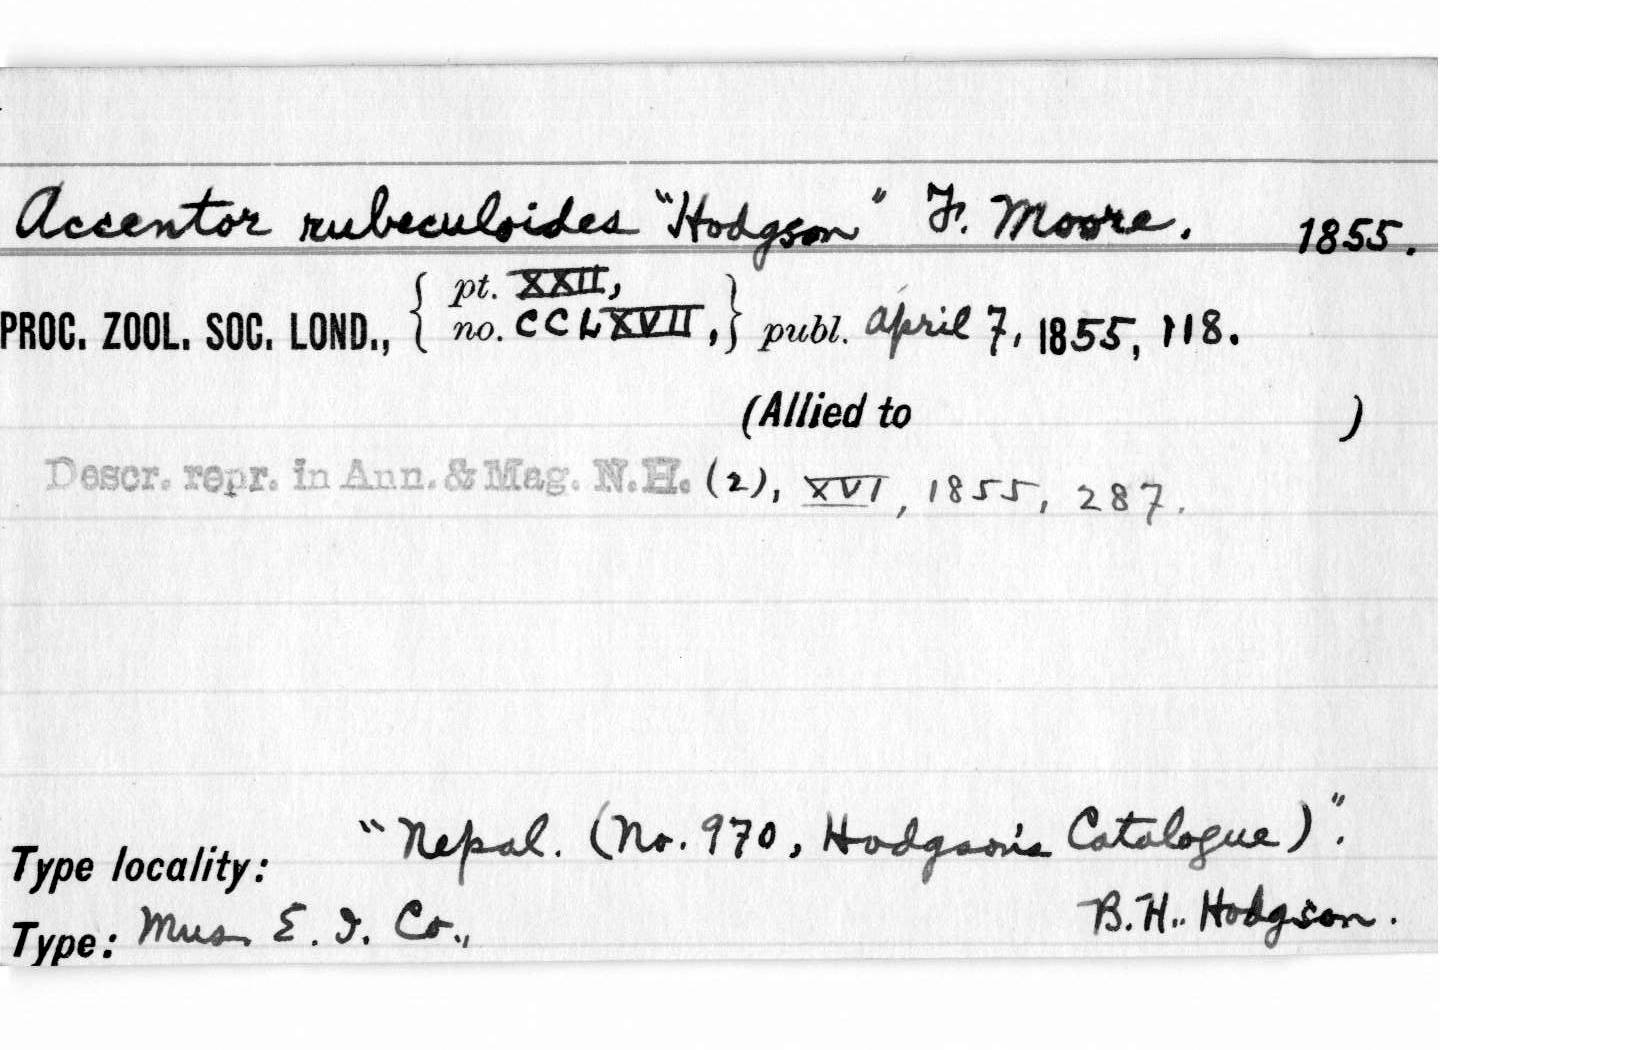 Accentor rubeculoides "Hodgson" F. Moore. 1855.
pt. XXII,
PROC. ZOOL. SOC. LOND., { no. CCLXVII, } publ. April 7, 1855, 118.
(Allied to )
Descr. repr. in Ann. & Mag. N.H. (2), XVI, 1855, 287.
Type locality: "Nepal. (No. 970, Hodgson's Catalogue)".
Type: Mus. E. I. Co., B.H. Hodgson.